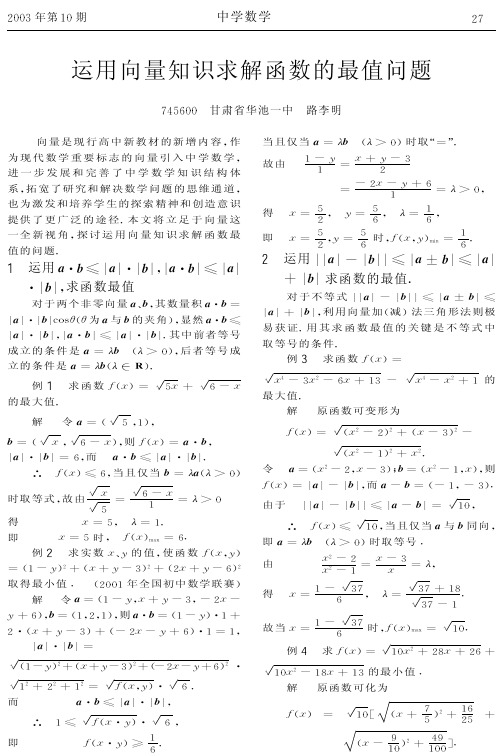 2003 年第 10 期
中学数学
27
运用向量知识求解函数的最值问题
745600 甘肃省华池一中 路李明
向量是现行高中新教材的新增内容,作
为现代数学重要标志的向量引入中学数学,
进一步发展和完善了中学数学知识结构体
系,拓宽了研究和解决数学问题的思维通道,
也为激发和培养学生的探索精神和创造意识
提供了更广泛的途径.本文将立足于向量这
一全新视角,探讨运用向量知识求解函数最
值的问题.
1 运用 a·b≤|a|·|b|,|a·b|≤|a|
·|b|,求函数最值
对于两个非零向量 a、b,其数量积 a·b=
|a|·|b|cosθ(θ为 a 与 b 的夹角),显然 a·b≤
|a|·|b|,|a·b|≤|a|·|b|.其中前者等号
成立的条件是 a = λb (λ>0),后者等号成
立的条件是 a = λb(λ∈R).
例 1 求函数 f(x) = √5x + √(6-x)
的最大值.
解 令 a = (√5,1),
b = (√x,√(6-x)),则 f(x) = a·b,
|a|·|b| = 6,而 a·b≤|a|·|b|.
∴ f(x)≤6,当且仅当 b = λa(λ>0)
时取等式,故由 √x/√5 = √(6-x)/1 = λ>0
得 x = 5, λ = 1.
即 x = 5 时, f(x)max = 6.
例 2 求实数 x、y 的值,使函数 f(x,y)
= (1-y)²+(x+y-3)²+(2x+y-6)²
取得最小值. (2001 年全国初中数学联赛)
解 令 a = (1-y,x+y-3,-2x-
y+6),b = (1,2,1),则 a·b = (1-y)·1+
2·(x+y-3)+(-2x-y+6)·1 = 1,
|a|·|b| =
√((1-y)²+(x+y-3)²+(-2x-y+6)²)·
√(1²+2²+1²) = √f(x,y)·√6.
而 a·b≤|a|·|b|,
∴ 1≤√f(x·y)·√6,
即 f(x·y)≥1/6.
当且仅当 a = λb (λ>0)时取“=”.
故由 (1-y)/1 = (x+y-3)/2
= (-2x-y+6)/1 = λ>0,
得 x = 5/2, y = 5/6, λ = 1/6,
即 x = 5/2,y = 5/6 时,f(x,y)min = 1/6
2 运用 ||a|-|b||≤|a±b|≤|a|
+|b| 求函数的最值.
对于不等式 ||a|-|b||≤|a±b|≤
|a|+|b|,利用向量加(减)法三角形法则极
易获证.用其求函数最值的关键是不等式中
取等号的条件.
例 3 求函数 f(x) =
√(x⁴-3x²-6x+13) - √(x⁴-x²+1) 的
最大值.
解 原函数可变形为
f(x) = √((x²-2)²+(x-3)²) -
√((x²-1)²+x²).
令 a = (x²-2,x-3);b = (x²-1,x),则
f(x) = |a|-|b|,而 a-b = (-1,-3).
由于 ||a|-|b||≤|a-b| = √10,
∴ f(x)≤√10,当且仅当 a 与 b 同向,
即 a = λb (λ>0)时取等号.
由 (x²-2)/(x²-1) = (x-3)/x = λ,
得 x = (1-√37)/6, λ = (√37+18)/(√37-1).
故当 x = (1-√37)/6 时,f(x)max = √10.
例 4 求 f(x) = √(10x²+28x+26) +
√(10x²-18x+13) 的最小值.
解 原函数可化为
f(x) = √10[√((x+7/5)²+16/25) +
√((x-9/10)²+49/100)].